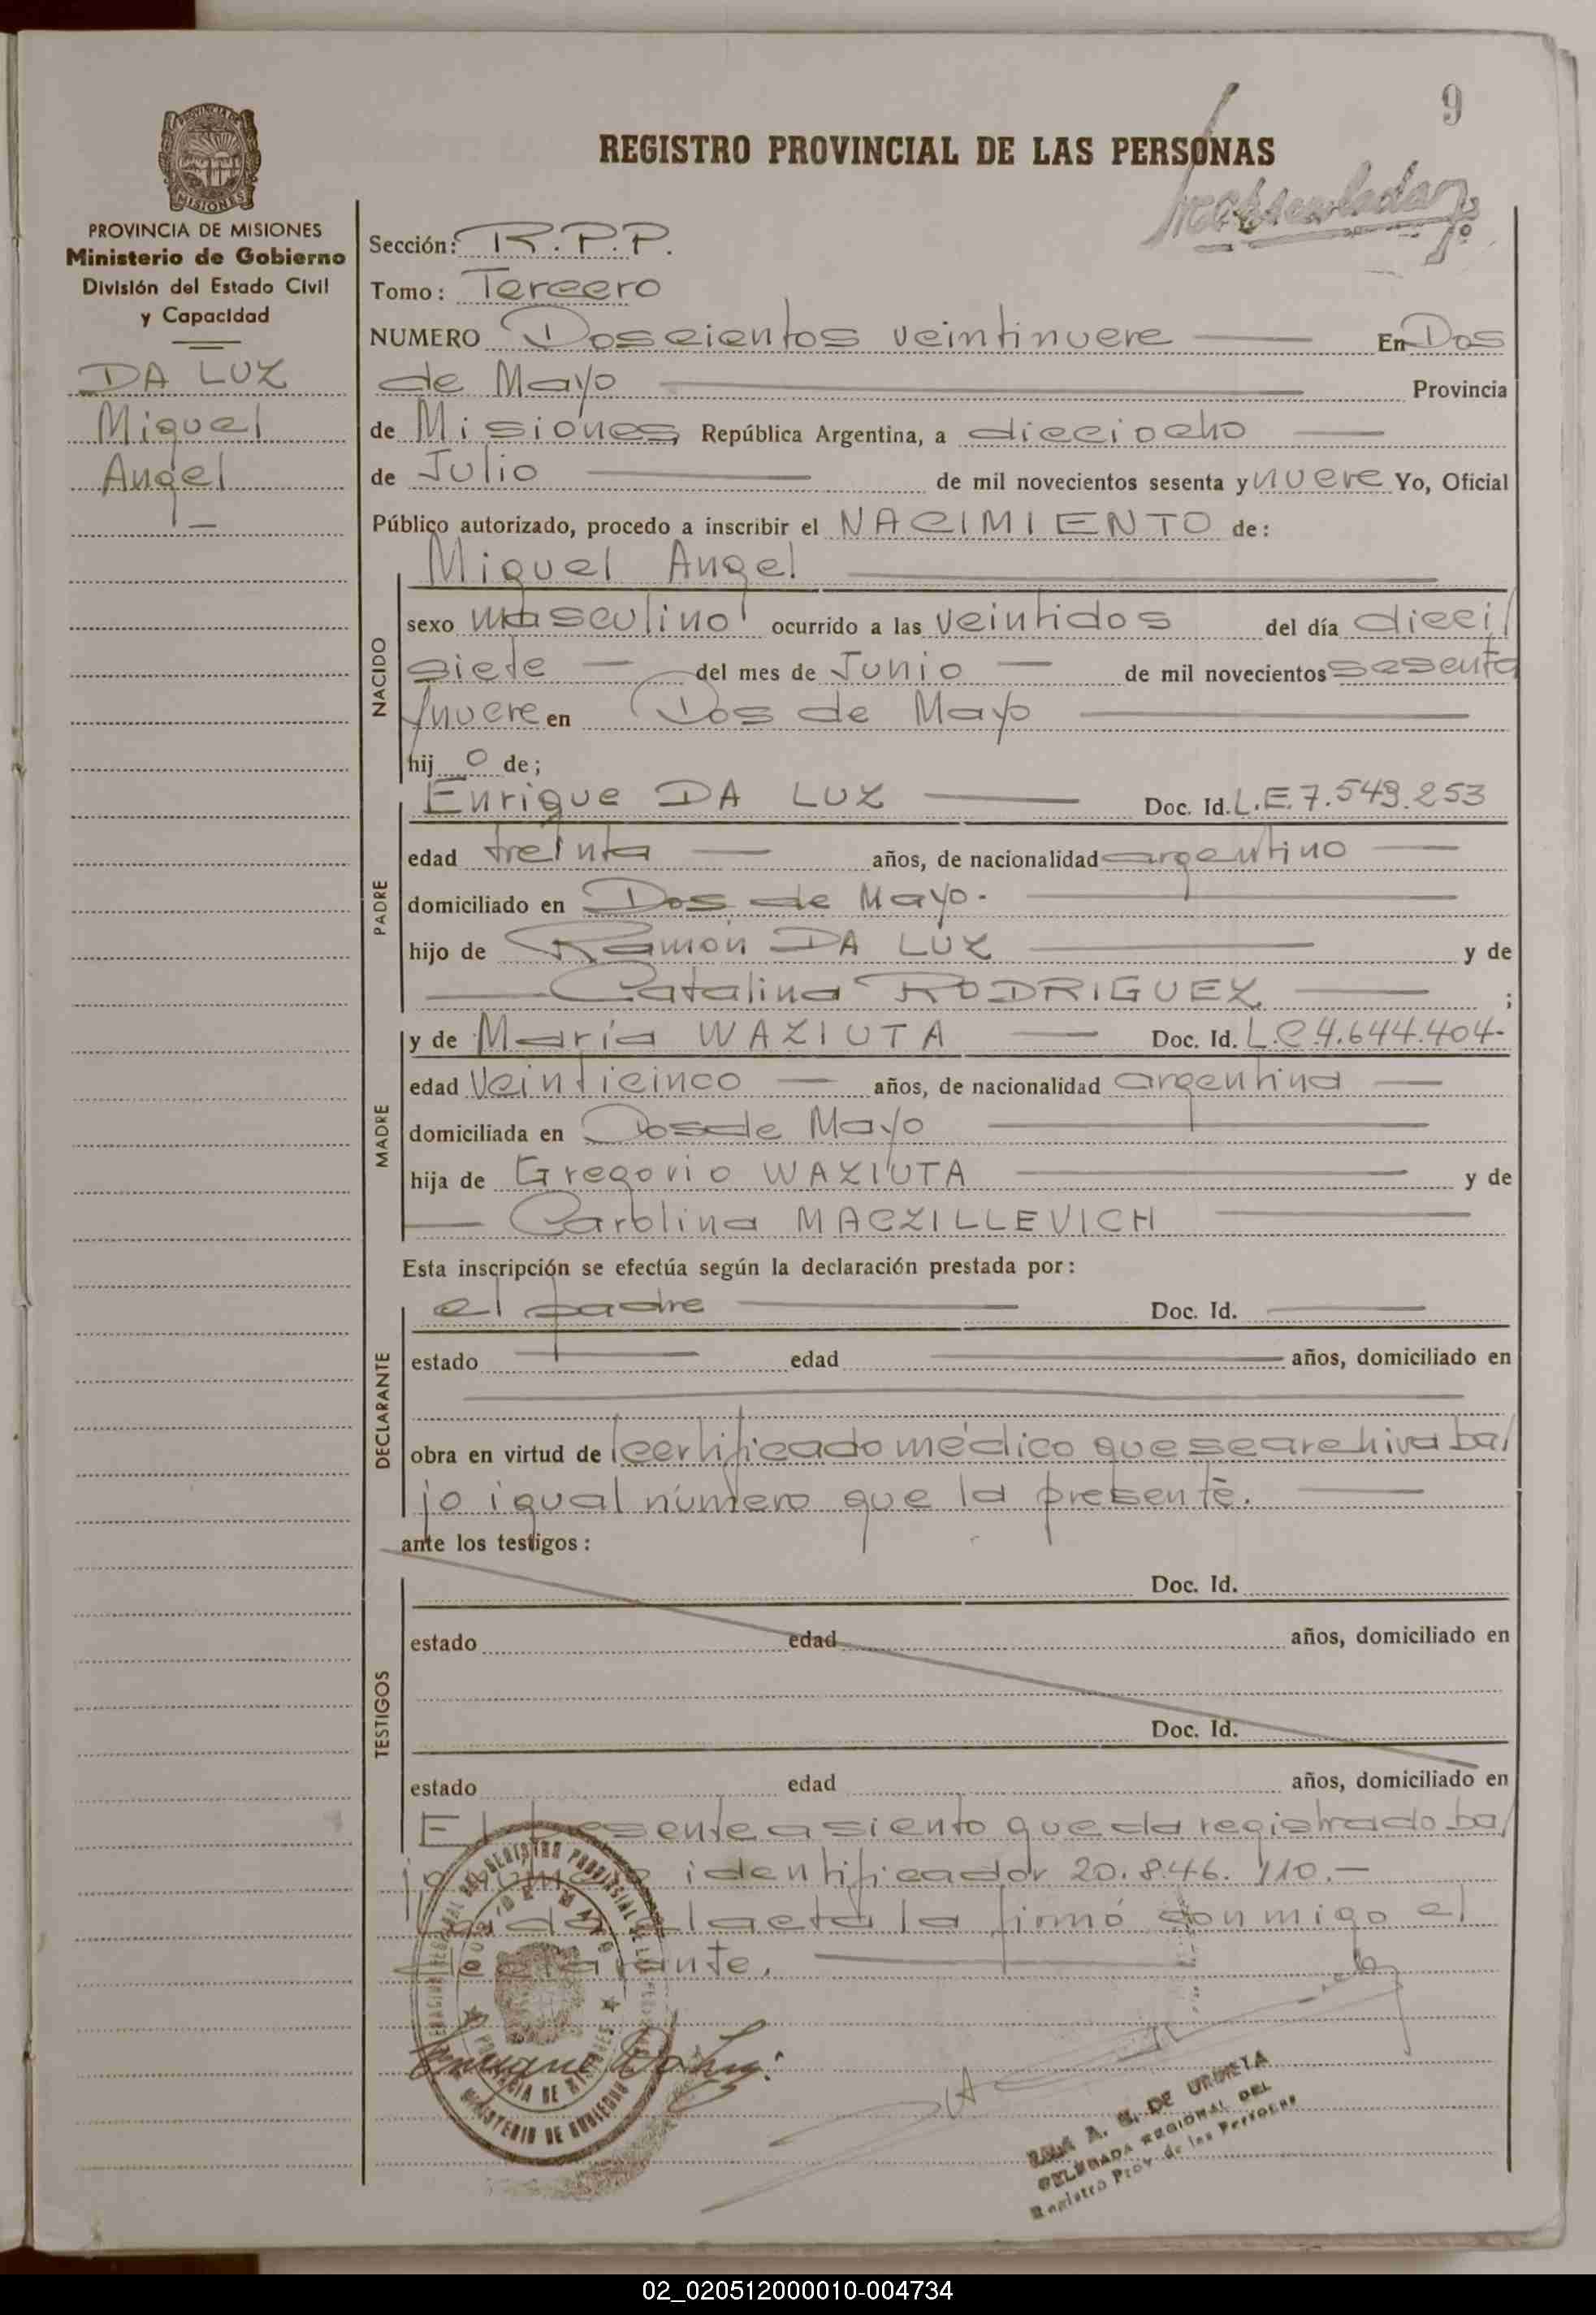 9
REGISTRO PROVINCIAL DE LAS PERSONAS
PROVINCIA DE MISIONES
Ministerio de Gobierno
División del Estado Civil
y Capacidad
DA LUZ
Miguel
Angel
Sección: R.P.P.
Tomo: Tercero
NUMERO Doscientos veintinueve En Dos
de Mayo Provincia
de Misiones República Argentina, a dieciocho
de Julio de mil novecientos sesenta y nueve Yo, Oficial
Público autorizado, procedo a inscribir el NACIMIENTO de:
NACIDO
Miguel Angel
sexo masculino ocurrido a las veintidos del día dieci/
siete del mes de Junio de mil novecientos sesenta
/nueve en Dos de Mayo
hij o de;
PADRE
Enrique DA LUZ Doc. Id. L.E. 7.549.253
edad treinta años, de nacionalidad argentino
domiciliado en Dos de Mayo.
hijo de Ramón DA LUZ y de
Catalina RODRIGUEZ ;
MADRE
y de María WAZIUTA Doc. Id. L.C 4.644.404-
edad veinticinco años, de nacionalidad argentina
domiciliada en Dos de Mayo
hija de Gregorio WAZIUTA y de
Carolina MACZILLEVICH
Esta inscripción se efectúa según la declaración prestada por:
DECLARANTE
el padre Doc. Id.
estado edad años, domiciliado en
obra en virtud de certificado médico que se archiva ba/
jo igual número que la presente.
ante los testigos:
TESTIGOS
Doc. Id.
estado edad años, domiciliado en
Doc. Id.
estado edad años, domiciliado en
El presente asiento queda registrado ba/
jo número identificador 20.846.110.-
el acta la firmó conmigo el
declarante.
PROVINCIA DE MISIONES
MINISTERIO DE GOBIERNO
A. G. DE URRIETA
DELEGADA REGIONAL DEL
Registro Prov. de las Personas
02_020512000010-004734